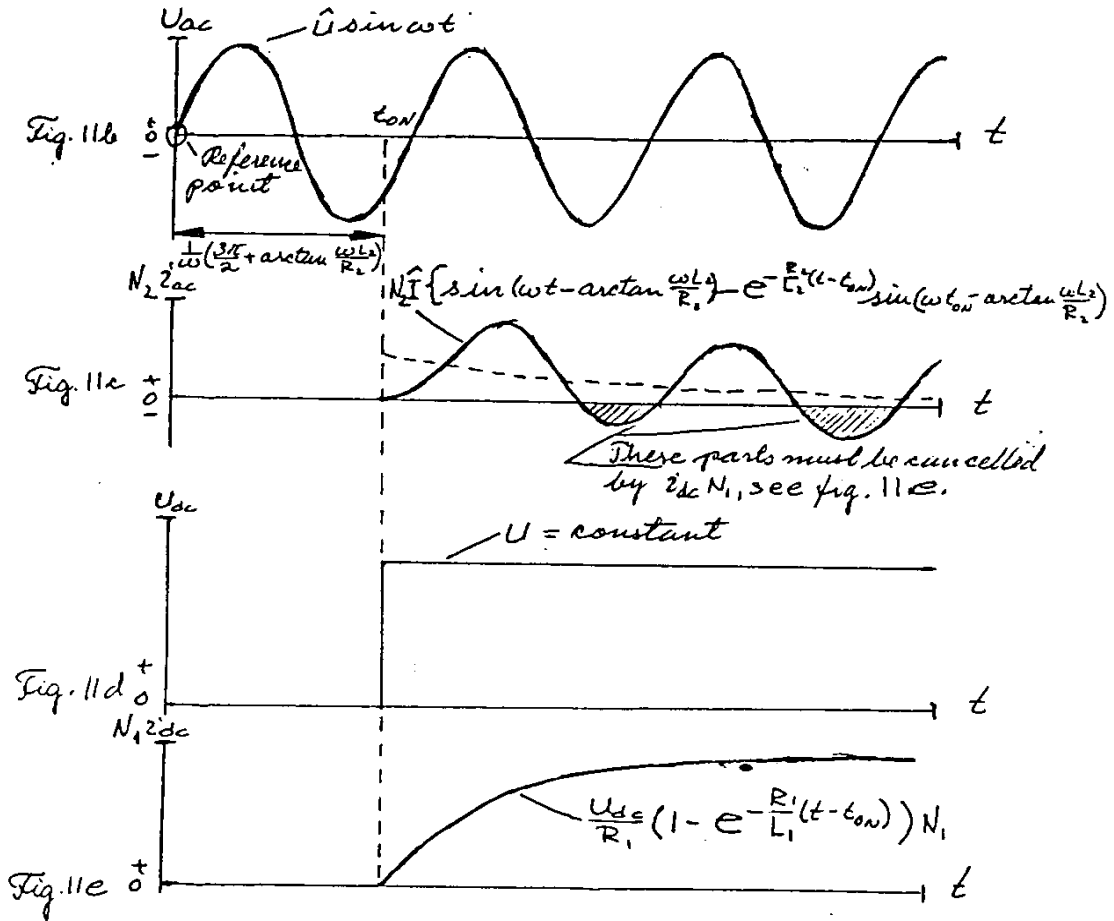 U_ac
Û sin ωt
Fig. 11b
+
0
−
Reference
point
t_ON
t
1/ω(3π/2 + arctan ωL₂/R₂)
N₂ i_ac
N₂Î{sin(ωt − arctan ωL₂/R₂) − e^(−R₂/L₂(t − t_ON)) sin(ωt_ON − arctan ωL₂/R₂)
Fig. 11c
+
0
−
t
These parts must be cancelled
by i_dc N₁, see fig. 11e.
U_dc
U = constant
Fig. 11d
+
0
t
N₁ i_dc
U_dc/R₁ (1 − e^(−R₁/L₁(t − t_ON))) N₁
Fig. 11e
+
0
t